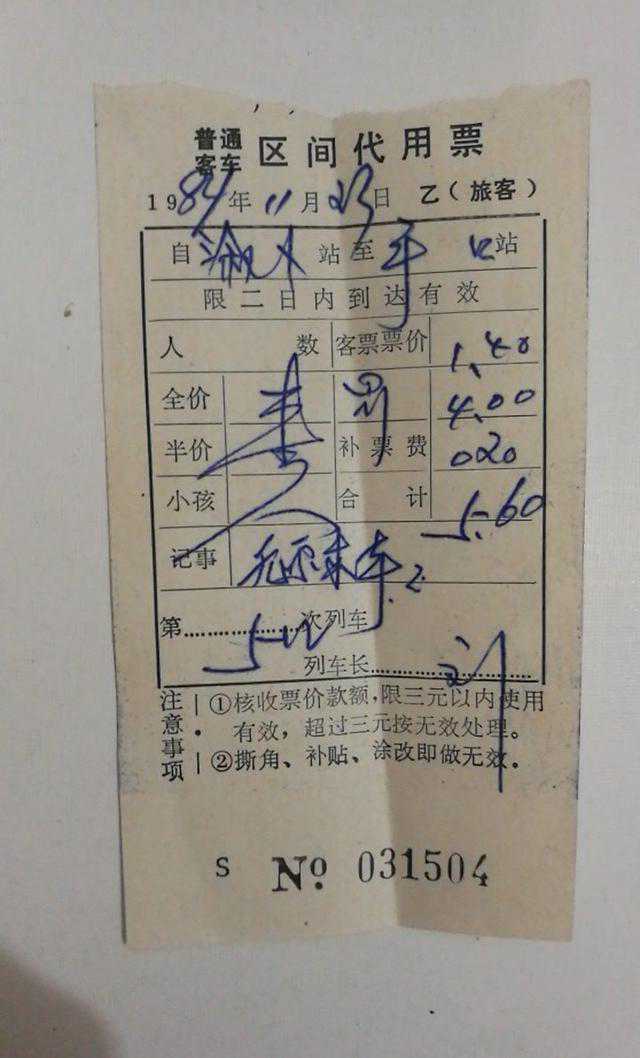 普通客车 区间代用票
1984年11月23日 乙(旅客)
自 站至 口站
限二日内到达有效
人数 客票票价 1.40
全价 壹 罚 4.00
半价 补票费 020
小孩 合计 5.60
记事 无票乘车.2.
第 次列车
列车长 刘
注意事项
①核收票价款额,限三元以内使用
有效,超过三元按无效处理。
②撕角、补贴、涂改即做无效。
S No 031504